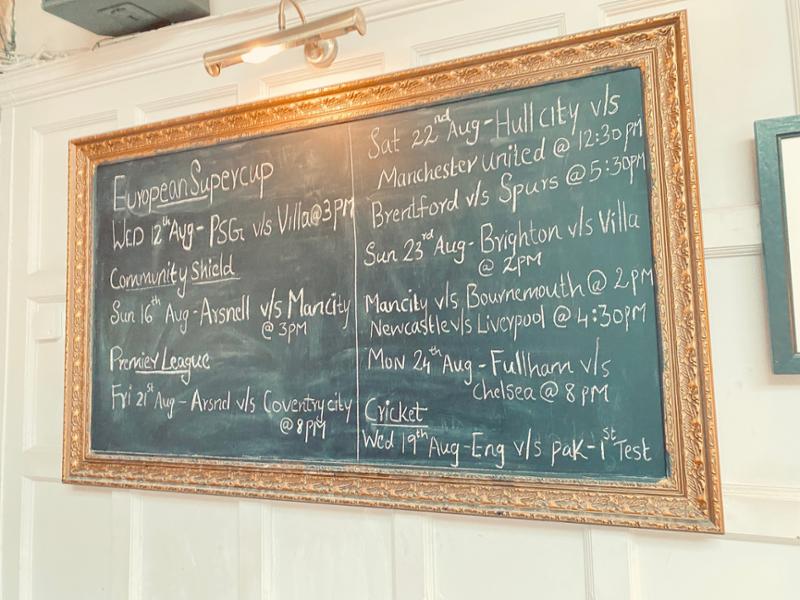 European Supercup
Wed 12th Aug - PSG v/s Villa @ 3PM
Community Shield
Sun 16th Aug - Arsnell v/s Mancity
@ 3PM
Premier League
Fri 21st Aug - Arsnd v/s Coventry city
@ 8PM
Sat 22nd Aug - Hull city v/s
Manchester united @ 12:30 PM
Brentford v/s Spurs @ 5:30PM
Sun 23rd Aug - Brighton v/s Villa
@ 2PM
Mancity v/s Bournemouth @ 2PM
Newcastle v/s Liverpool @ 4:30PM
Mon 24th Aug - Fullham v/s
Chelsea @ 8PM
Cricket
Wed 19th Aug - Eng v/s pak - 1st Test